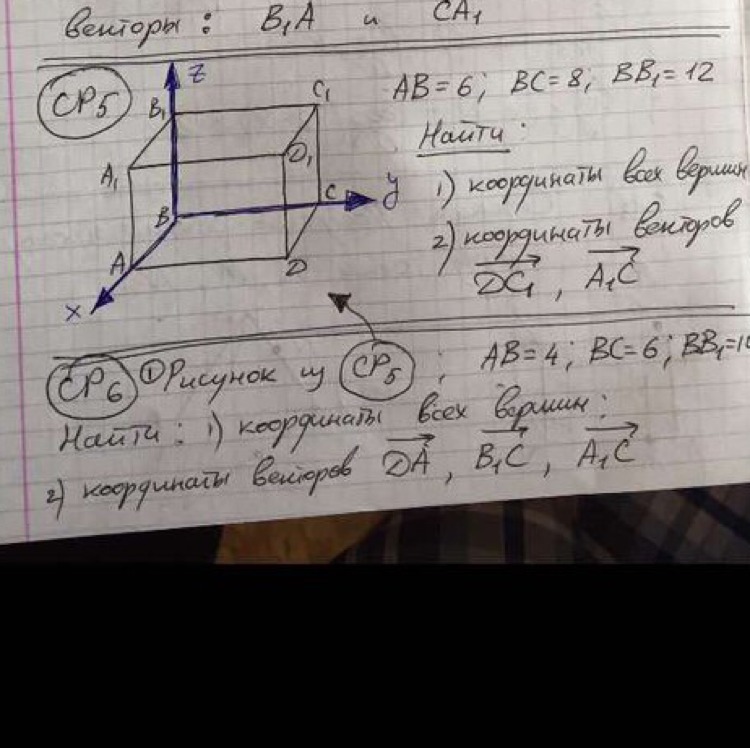 векторы: B₁A и CA₁
СР5
z
B₁
C₁
A₁
D₁
B
C
y
A
D
x
AB=6; BC=8; BB₁=12
Найти:
1) координаты всех вершин
2) координаты векторов
DC₁, A₁C
СР6 ① Рисунок из СР5; AB=4; BC=6; BB₁=
Найти: 1) координаты всех вершин:
2) координаты векторов DA, B₁C, A₁C